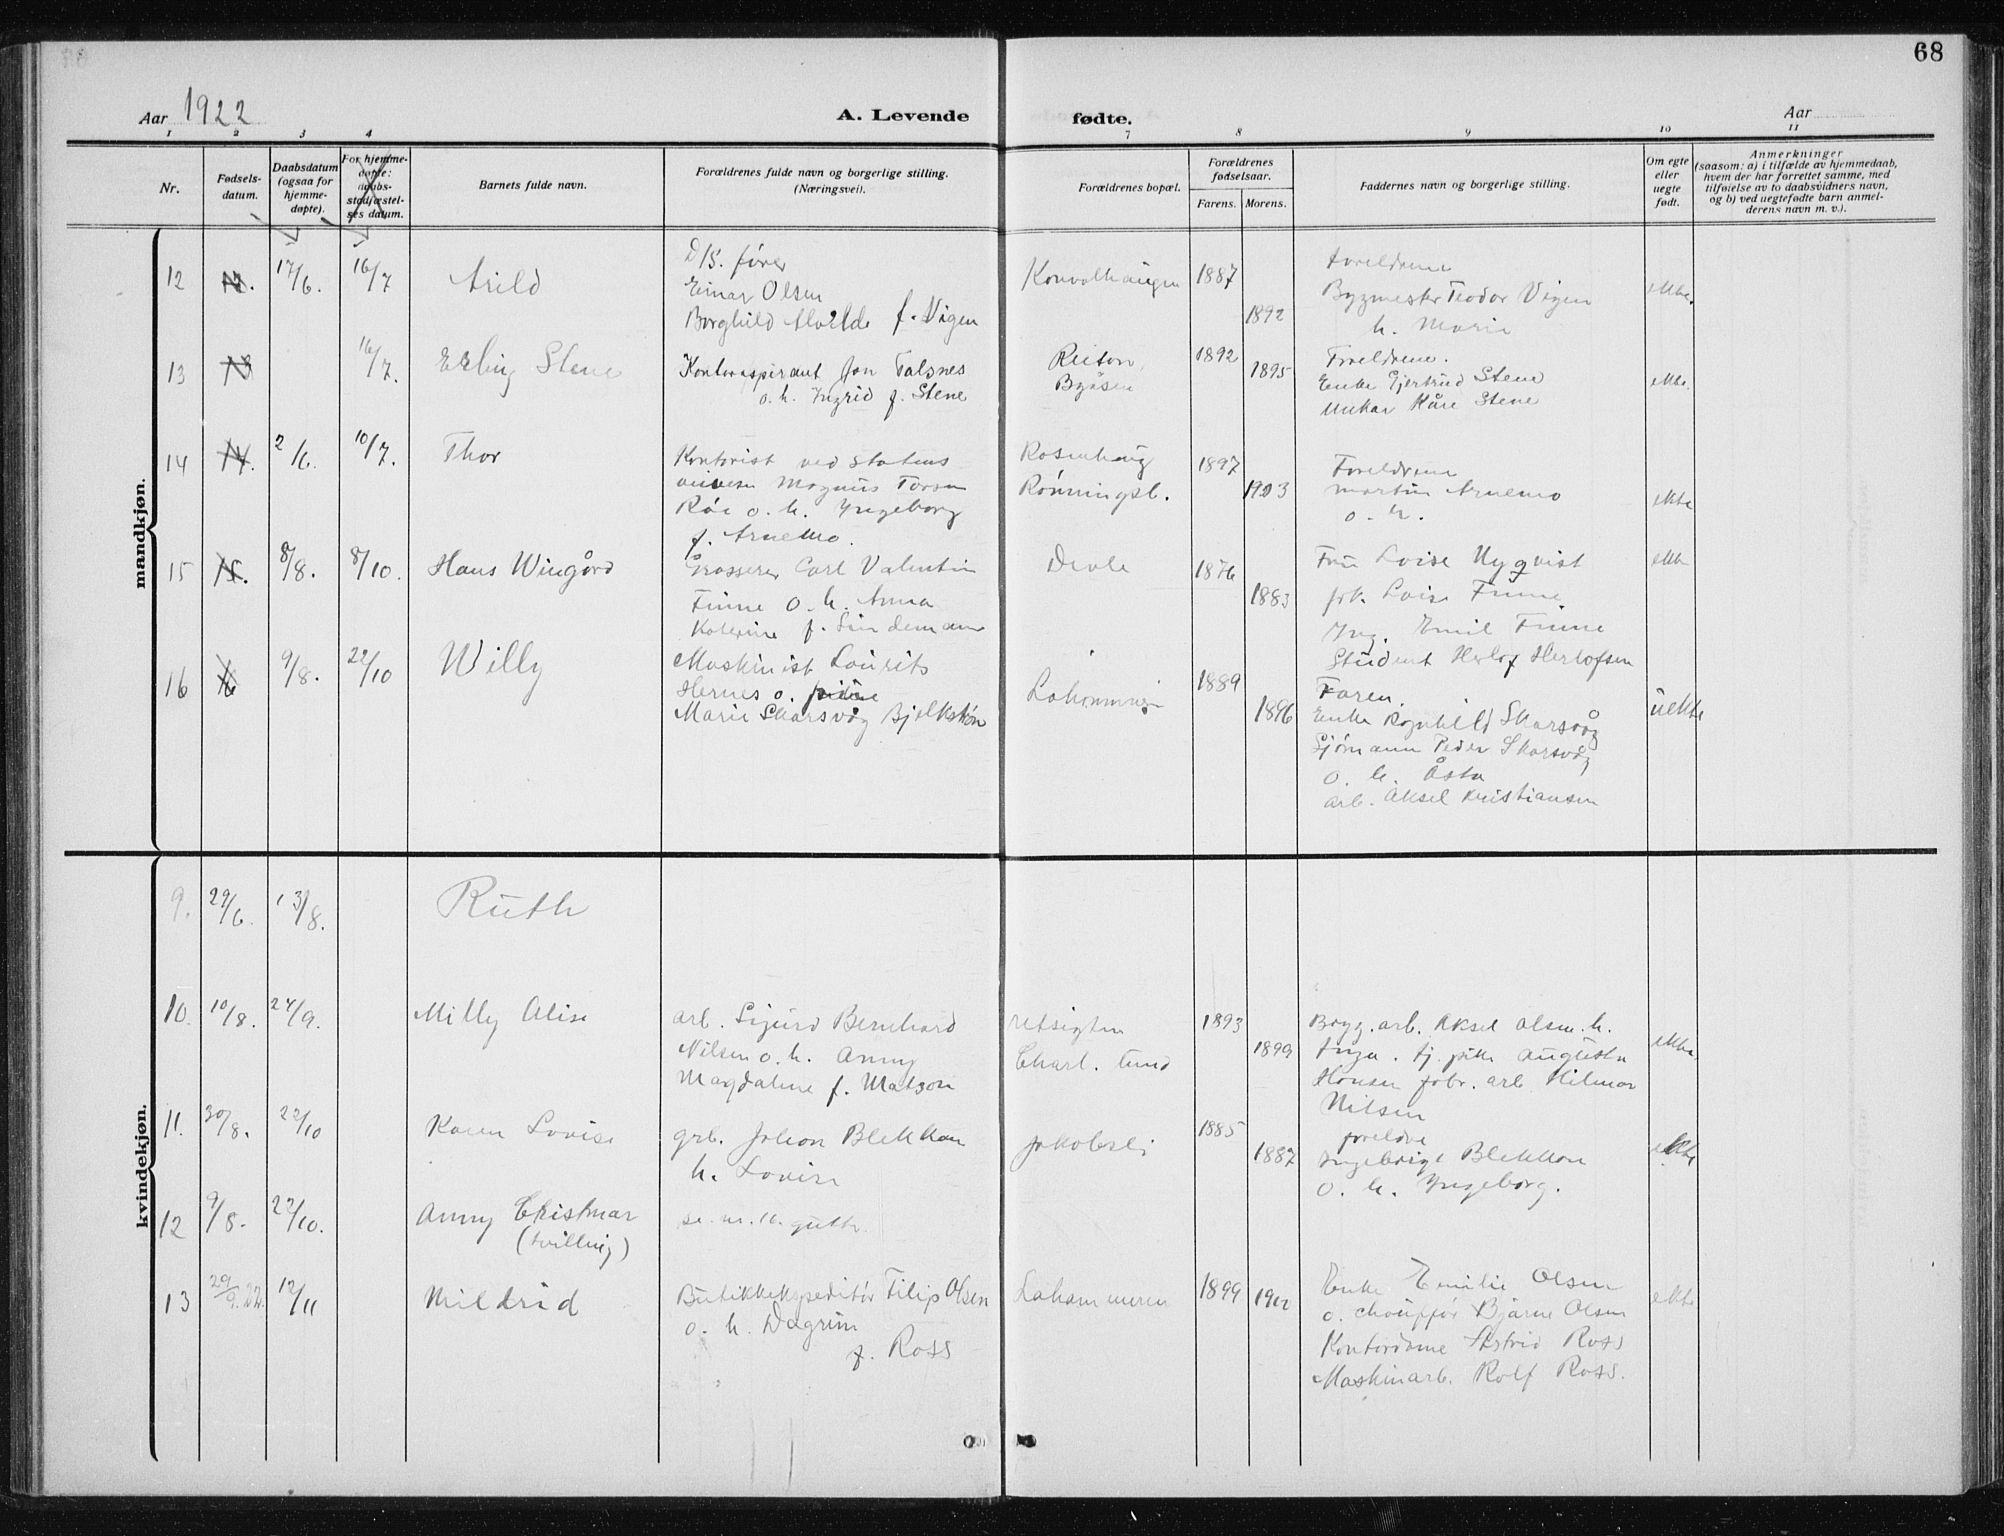 68
Aar 1922
A. Levende fødte.
Aar
1 2 3 4 7 8 9 10 11
Nr.
Fødsels-
datum.
Daabsdatum
(ogsaa for
hjemme-
døpte).
For hjemme-
døpte:
daabs-
stadfæstel-
ses datum.
Barnets fulde navn.
Forældrenes fulde navn og borgerlige stilling.
(Næringsvei).
Forældrenes bopæl.
Forældrenes
fødselsaar.
Farens. Morens.
Faddernes navn og borgerlige stilling.
Om egte
eller
uegte
født.
Anmerkninger
(saasom: a) i tilfælde av hjemmedaab,
hvem der har forrettet samme, med
tilføielse av to daabsvidners navn,
og b) ved uegtefødte barn anmel-
derens navn m. v.).
mandkjøn.
12 12. 17/6. 16/7 Arild
D/S. fører
Einar Olsen
Borghild f. Vigen
1887
1892
Foreldrene
Bygmester Teodor Vigen
h. Marie
ekte.
13 13 16/7. Erling Stene
Kontoraspirant Jon Talsnes
o. h. Ingrid f. Stene
Byåsen
1892
1895
Foreldrene.
Enke Gjertrud Stene
Kåre Stene
ekte.
14 14. 2/6. 10/7. Thor
Kontorist ved statens
Magnus
Røe o. h. Yngeborg
f. Arnemo.
Rosenhaug
Rønningsl.
1897
1903
Foreldrene
Martin Arnemo
o. h.
ekte
15 15. 8/8. 8/10. Hans Wingård
Grosserer Carl Valentin
Finne o. h. Anna
Katerine f. Lindemann
Devle
1876
1883
Fru Loise Nyqvist
frk. Loise Finne
Ing. Emil Finne
Student Herlof Herlofsen
ekte
16 16 9/8. 22/10 Willy
Maskinist Laurits
Hernes o. pike
Marie Skarsvåg Bjelkstrøn
1889
1896
Faren.
Enke Ragnhild Skarsvåg
Sjømann Peder Skarsvåg
o. h. Åsta
arb. Aksel Kristiansen
uekte
kvindekjøn.
9. 29/6. 13/8. Ruth
10. 10/8. 24/9. Milly Alise
arb. Sigurd Bernhard
Nilsen o. h. Anny
Magdaline f. Matson
Charl. lund
1893
1899
Bryg. arb. Aksel Olsen. h.
Inga. tj. pike Augusta
Hansen fabr. arb Hilmar
Nilsen
ekte
11. 30/8. 22/10 Karen Lovise
grb. Johan Blekkan
h. Lovise
Jakobsli
1885
1887
foreldre
Ingebrigt Blekkan
o. h. Yngeborg.
ekte
12 9/8. 22/10. Anny
(tvilling)
se. nr. 16. gutter
13 29/9.22. 12/11 Mildrid
Butikkekspeditør Filip Olsen
o. h. Dagrun
f. Ross
Lahammeren
1899
Enke Emilie Olsen
o. chauffør Bjarne Olsen
Kontordame Astrid Ross
Maskinarb. Rolf Ross.
ekte